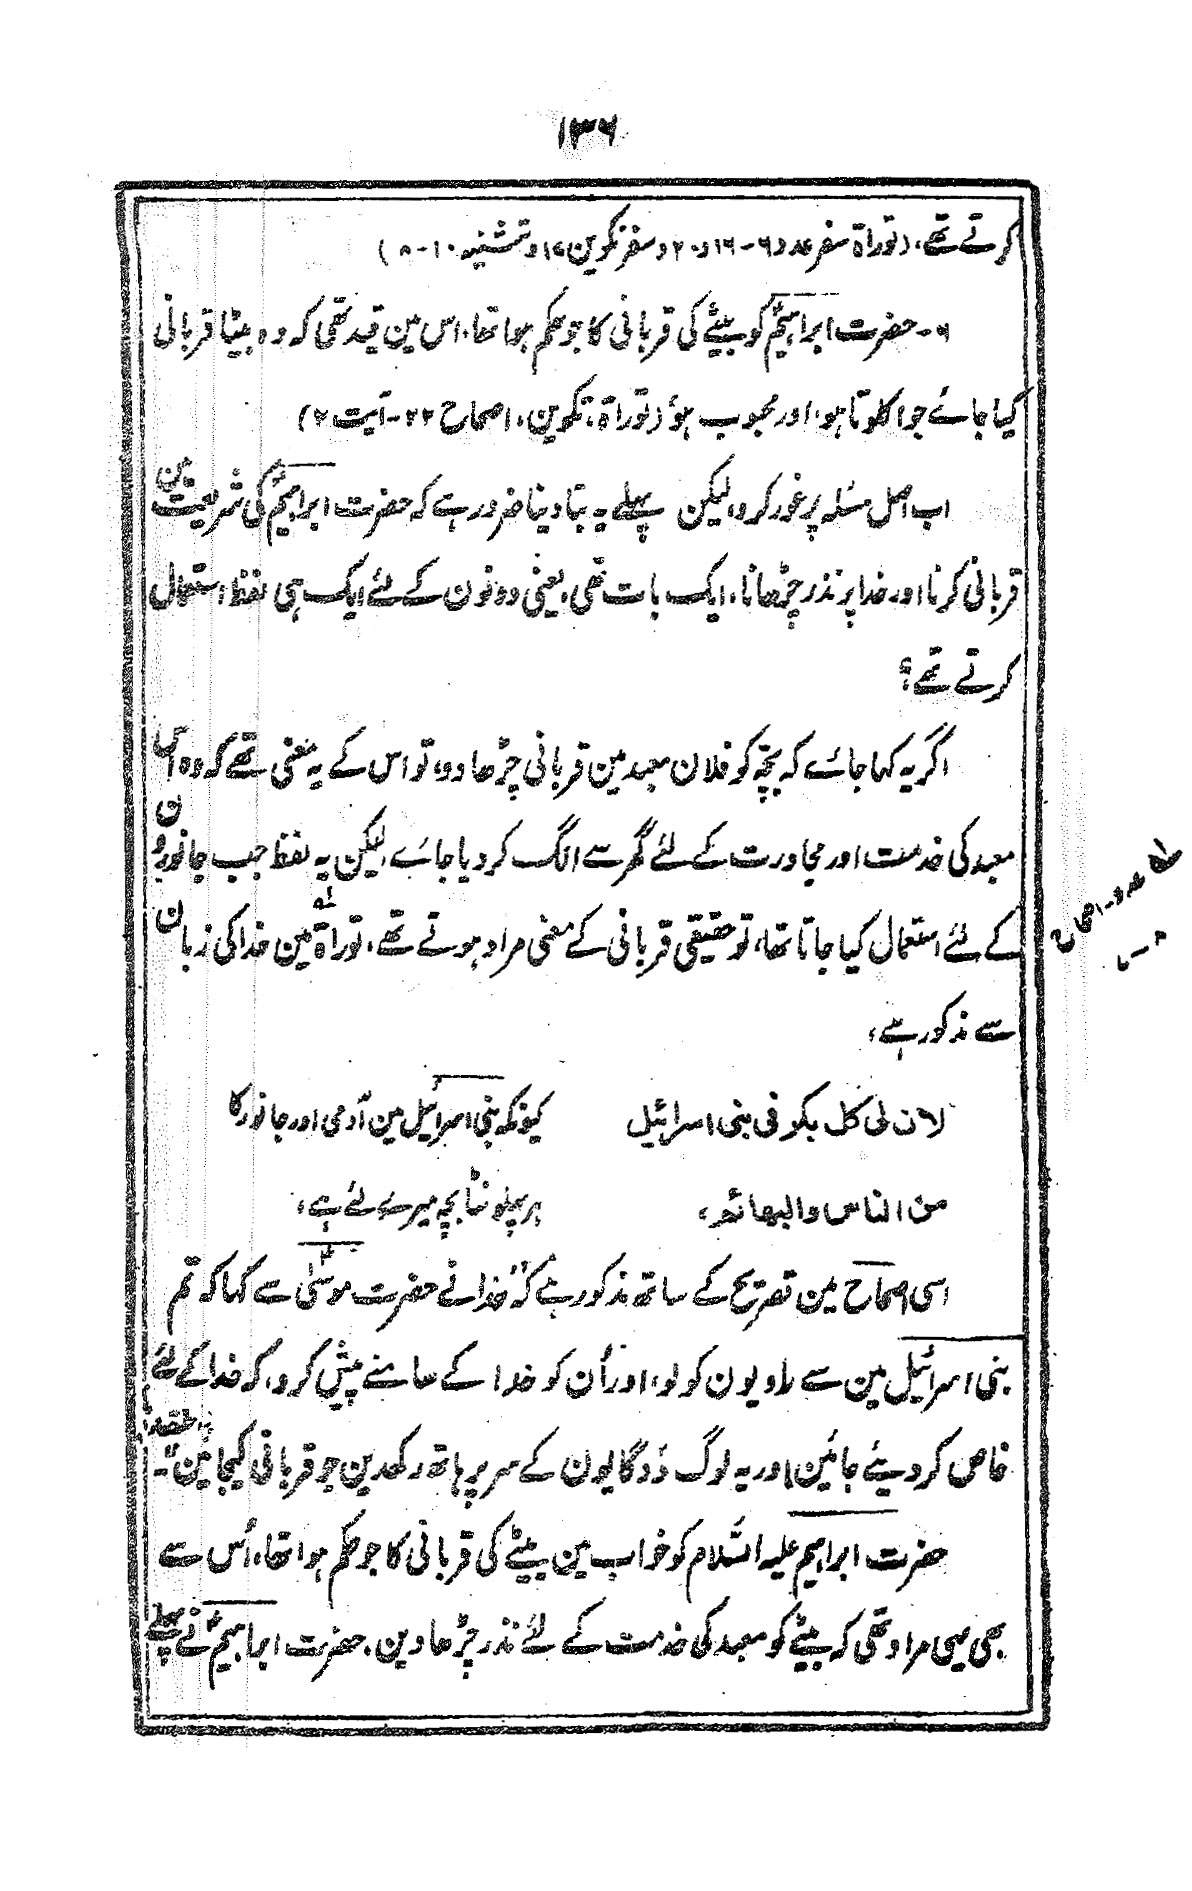 ۱۳۶
کرتے تھے، (توراۃ سفر عدد ۶-۱۶ و ۲۰ و سفر تکوین ۱۷ و تثنیہ ۱۰-۸)
۶- حضرت ابراہیمؑ کو بیٹے کی قربانی کا جو حکم ہوا تھا، اس مین قید تھی کہ وہ بیٹا قربانی
کیا جائے جو اکلوتا ہو، اور محبوب ہو (توراۃ، تکوین، اصحاح ۲۲- آیت ۲)
اب اصل مسئلہ پر غور کرو، لیکن پہلے یہ بتا دینا ضرور ہے کہ حضرت ابراہیمؑ کی شریعت مین
قربانی کرنا اور خدا پر نذر چڑھانا، ایک بات تھی، یعنی دونون کے لئے ایک ہی لفظ استعمال
کرتے تھے؛
اگر یہ کہا جائے کہ بچہ کو فلان معبد مین قربانی چڑھا دو، تو اس کے یہ معنی تھے کہ وہ اس
معبد کی خدمت اور مجاورت کے لئے گھر سے الگ کر دیا جائے، لیکن یہ لفظ جب جانورون
کے لئے استعمال کیا جاتا تھا، تو حقیقی قربانی کے معنی مراد ہوتے تھے، توراۃ مین خدا کی زبان
سے مذکور ہے،
لان لی کل بکر فی بنی اسرائیل
کیونکہ بنی اسرائیل مین آدمی اور جانور کا
من الناس والبهائم،
ہر پہلونٹا بچہ میرے لئے ہے،
اسی اصحاح مین تصریح کے ساتھ مذکور ہے کہ "خدا نے حضرت موسیٰؑ سے کہا کہ تم
بنی اسرائیل مین سے لاویون کو لو، اور اُن کو خدا کے سامنے پیش کرو، کہ خدا کے لئے
خاص کر دیئے جائین اور یہ لوگ دو گایون کے سر پر ہاتھ رکھدین جو قربانی کیجائین"-
حضرت ابراہیم علیہ السّلام کو خواب مین بیٹے کی قربانی کا جو حکم ہوا تھا، اُس سے
بھی یہی مراد تھی کہ بیٹے کو معبد کی خدمت کے لئے نذر چڑھا دین، حضرت ابراہیمؑ نے پہلے
عدد- اصحاح